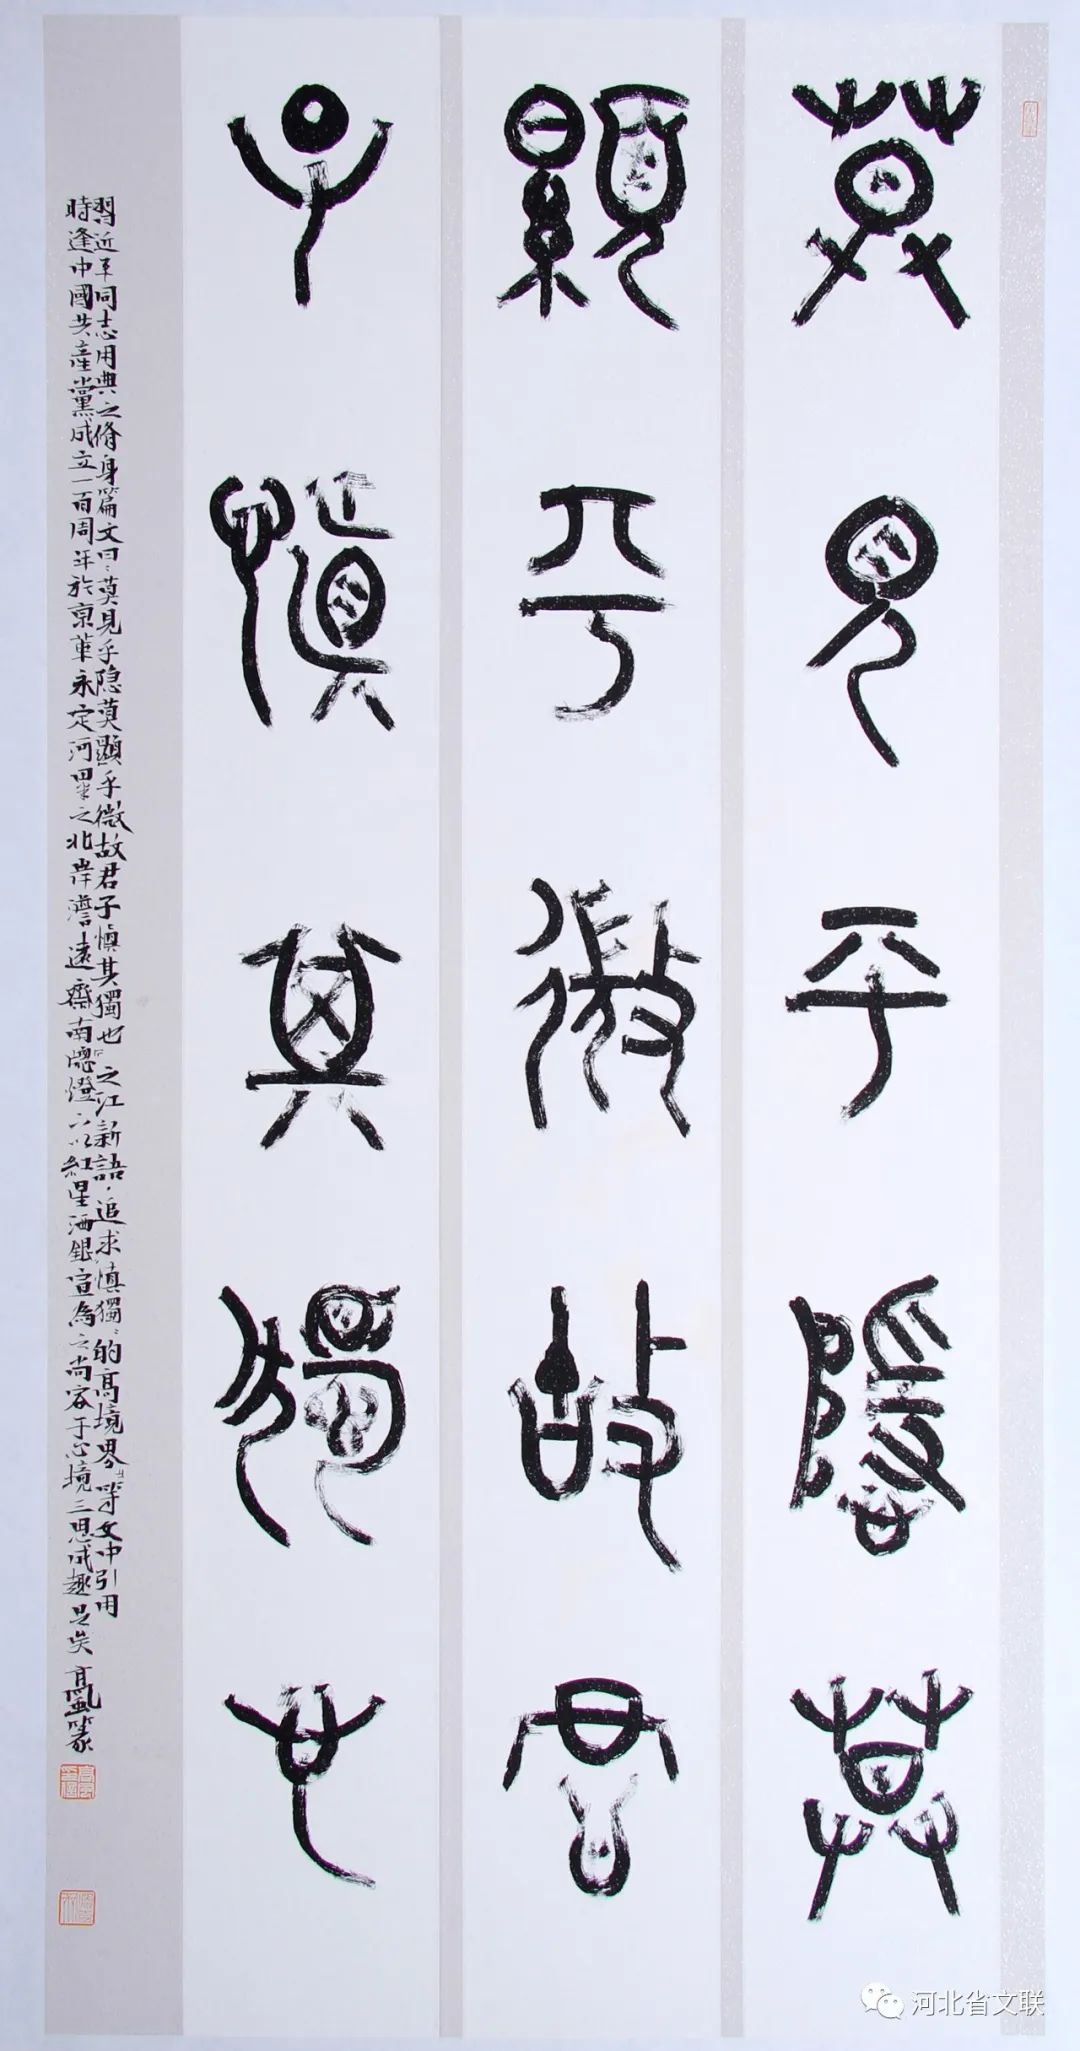 莫見乎隱莫
顯乎微故君
子慎其獨也
習近平同志用典之脩身篇文曰莫見乎隐莫顯乎微故君子慎其獨也之江新語追求慎獨的高境界等文中引用
時逢中國共產黨成立一百周年於京華永定河畢之北岸澹遠齋南窗燈下以紅星洒銀宣為之尚容于心境三思成趣足矣高風篆
河北省文联